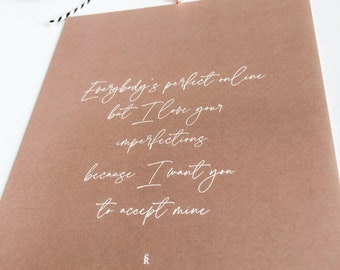 Everybody's perfect online
but I love your
imperfections
because I want you
to accept mine